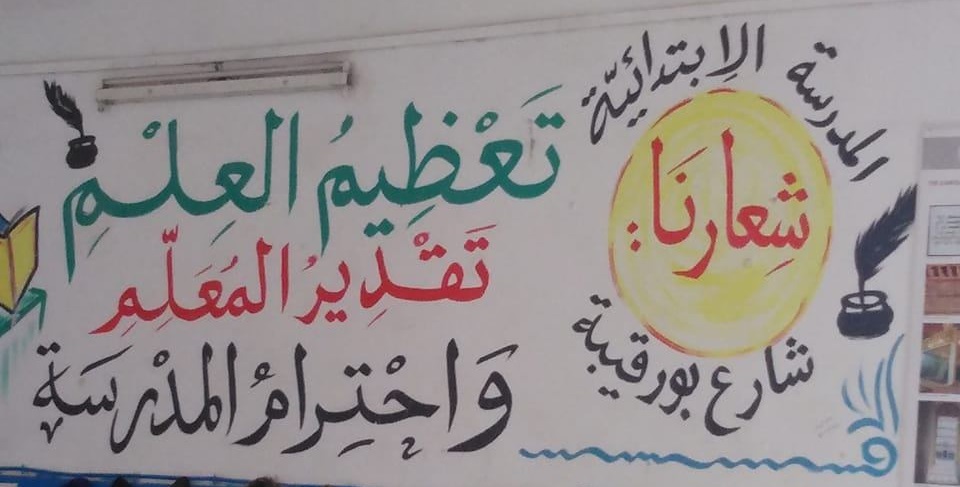 المدرسة الإبتدائيّة
شِعارنَا:
شارع بورقيبة
تَعْظِيمُ العِلْمِ
تَقْدِيرُ المُعَلِّمِ
وَاحْتِرامُ المدْرسَة